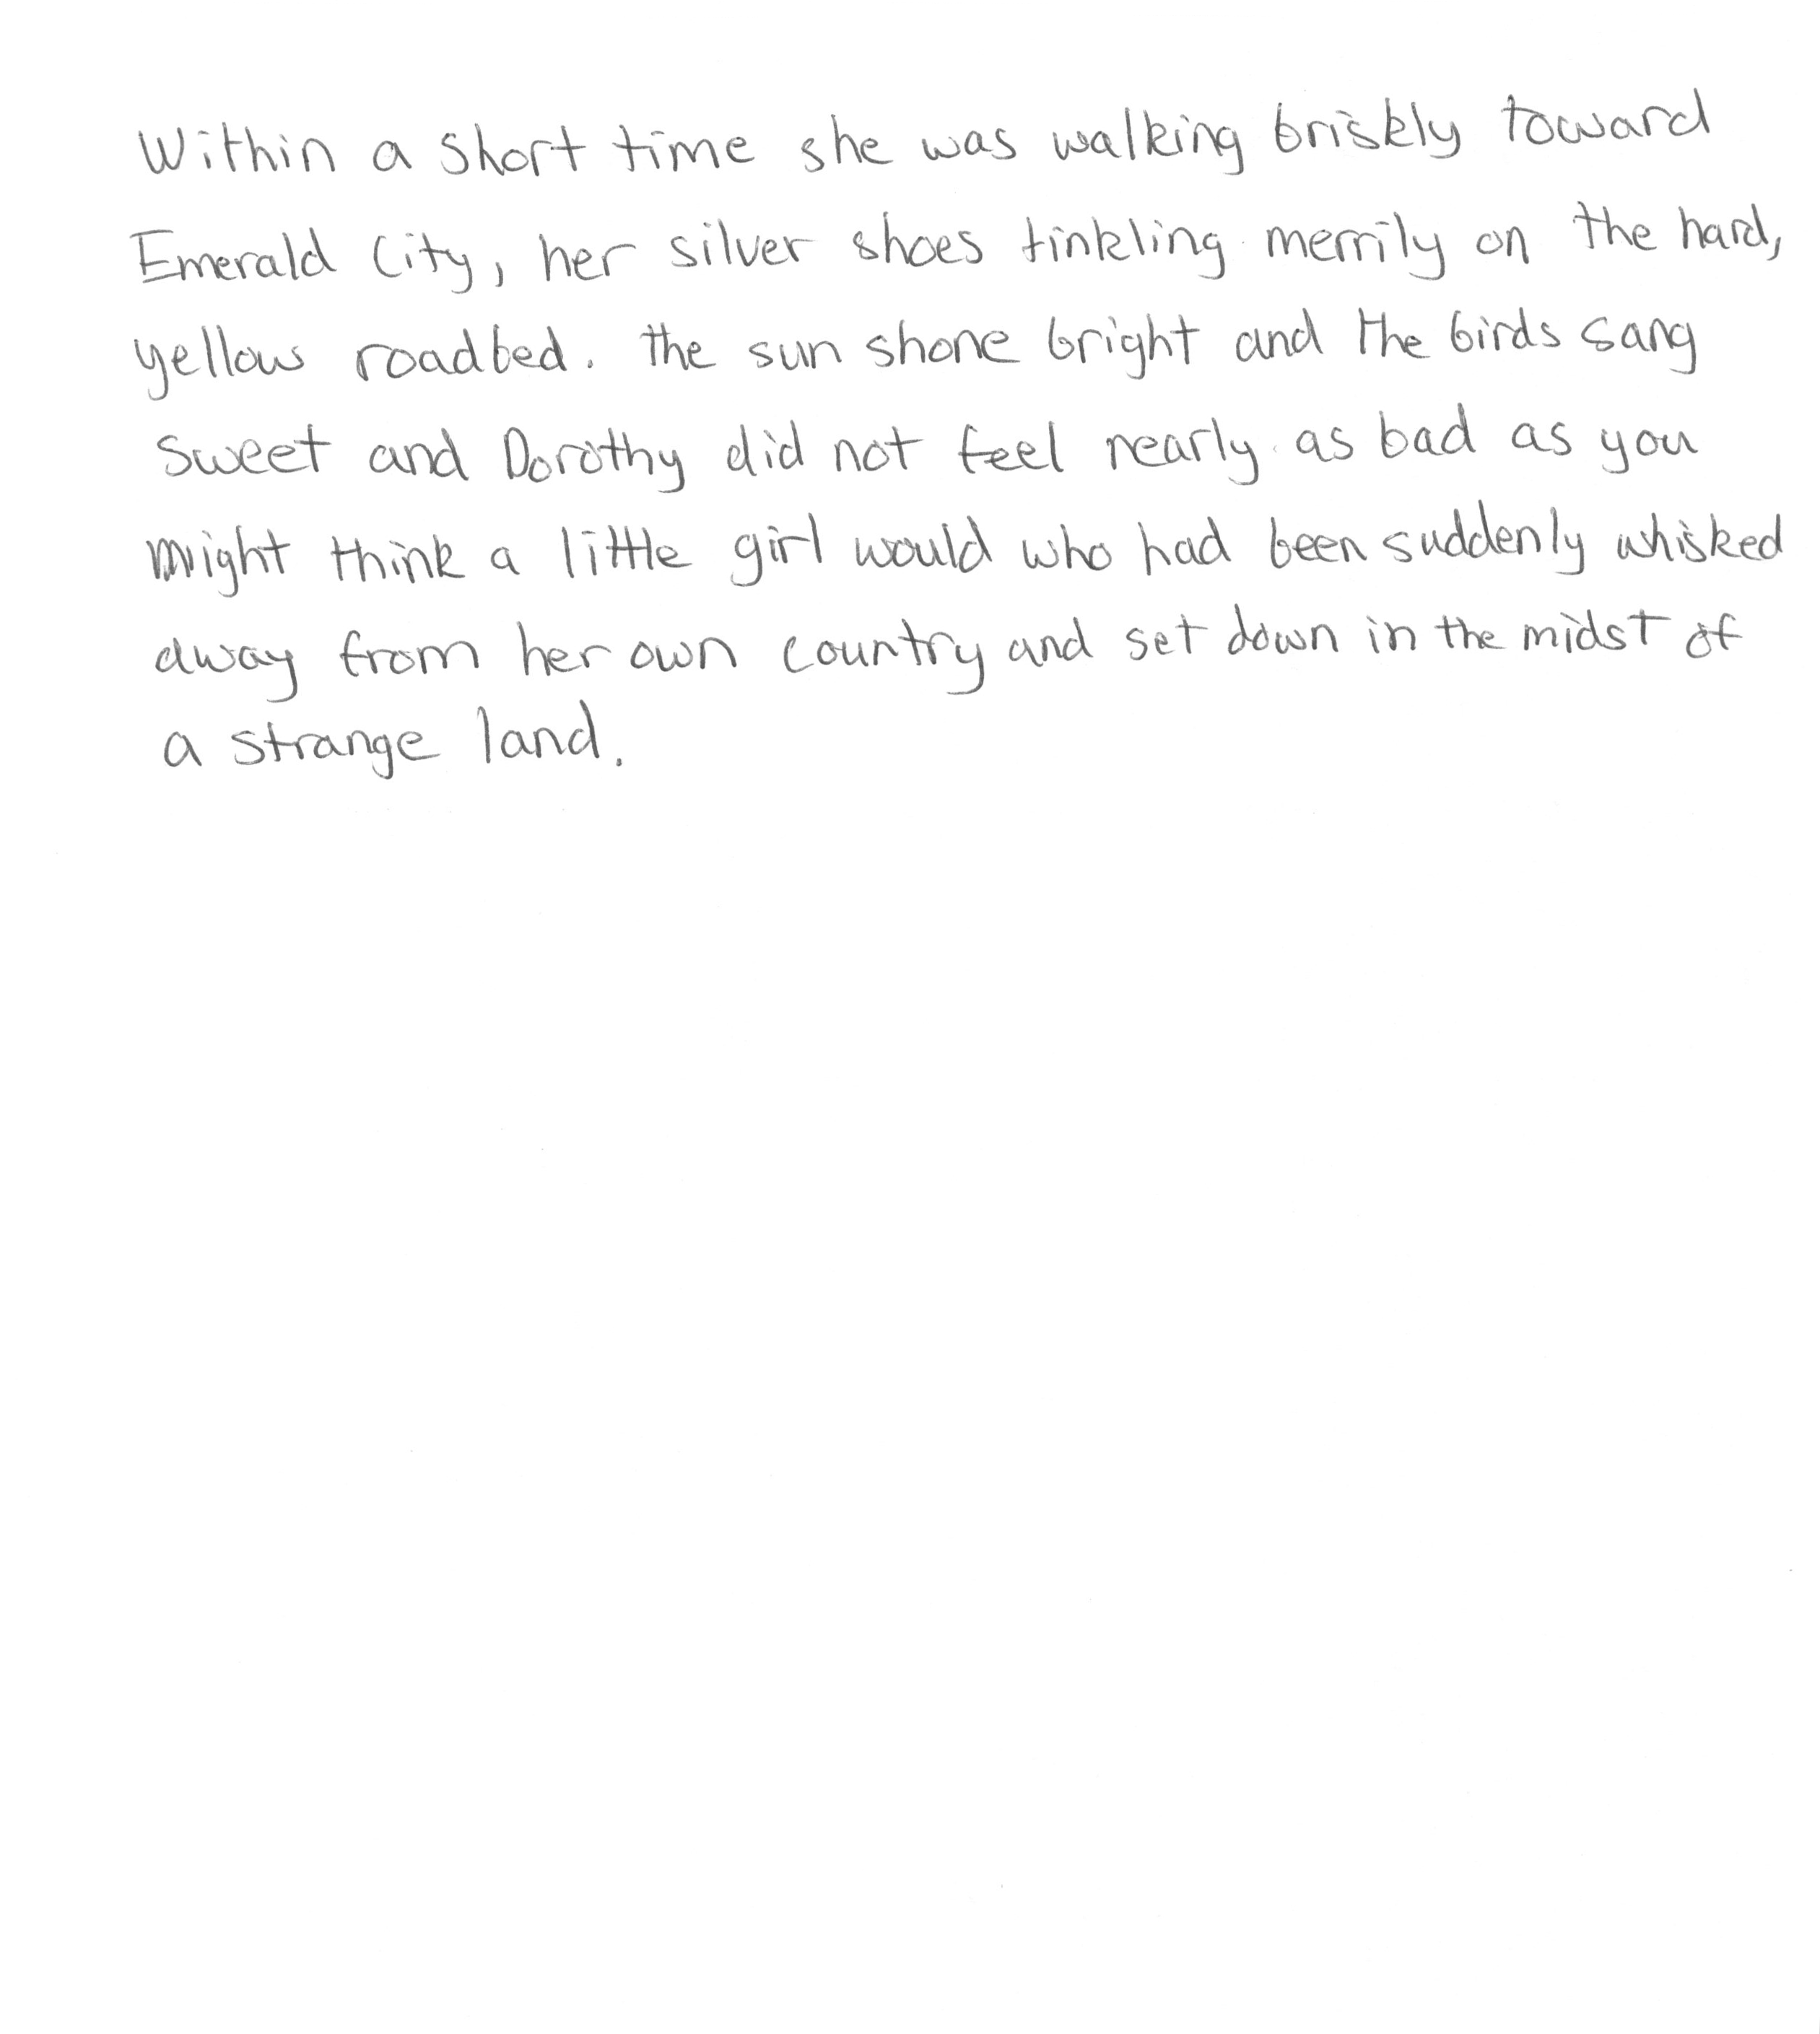 Within a short time she was walking briskly toward
Emerald City, her silver shoes tinkling merrily on the hard,
yellow roadbed. the sun shone bright and the birds sang
sweet and Dorothy did not feel nearly as bad as you
might think a little girl would who had been suddenly whisked
away from her own country and set down in the midst of
a strange land.